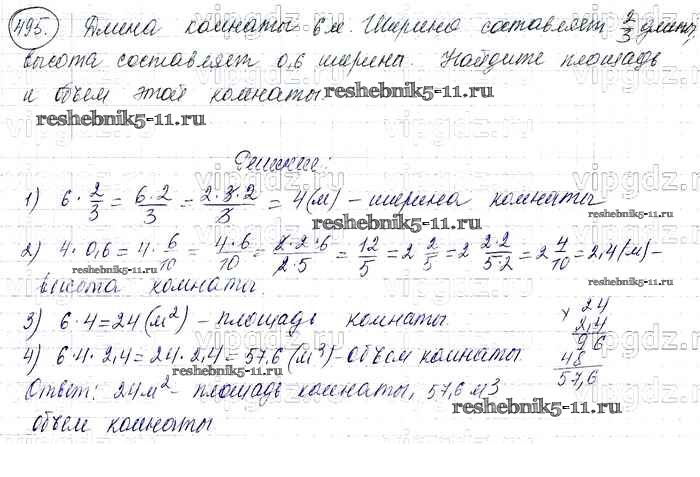 495. Длина комнаты 6 м. Ширина составляет 2/3 длины,
высота составляет 0,6 ширины. Найдите площадь
и объем этой комнаты.
reshebnik5-11.ru
reshebnik5-11.ru
Решение:
1) 6 · 2/3 = 6·2/3 = 2·3·2/3 = 4 (м) – ширина комнаты
reshebnik5-11.ru
2) 4 · 0,6 = 4 · 6/10 = 4·6/10 = 2·2·6/2·5 = 12/5 = 2 2/5 = 2 2·2/5·2 = 2 4/10 = 2,4 (м) –
reshebnik5-11.ru
reshebnik5-11.ru
высота комнаты.
3) 6·4 = 24 (м²) – площадь комнаты
× 24
2,4
96
48
57,6
4) 6·4·2,4 = 24·2,4 = 57,6 (м³) – объем комнаты
reshebnik5-11.ru
Ответ: 24 м² – площадь комнаты, 57,6 м3
объем комнаты
reshebnik5-11.ru
vipgdz.ru